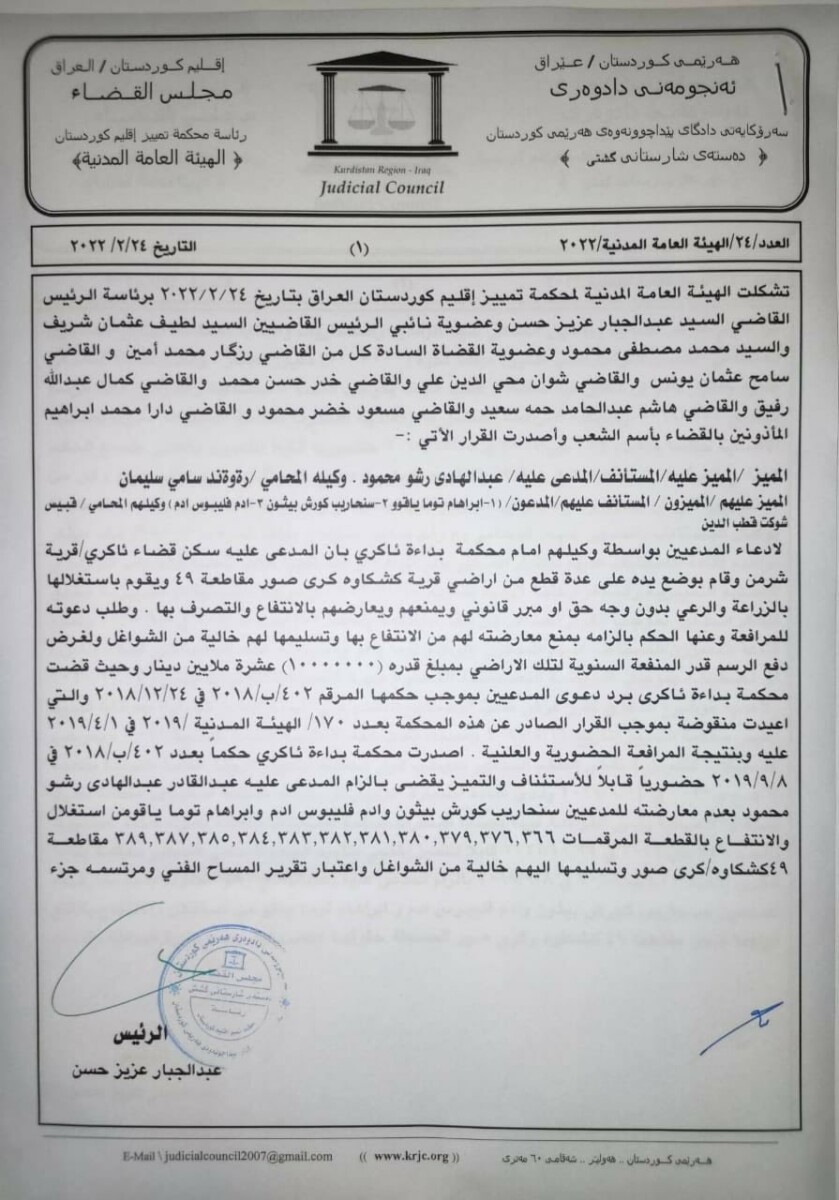 هەرێمی کوردستان / عێراق
ئەنجومەنی دادوەری
سەرۆکایەتی دادگای پێداچوونەوەی هەرێمی کوردستان
﴿ دەستەی شارستانی گشتی ﴾
Kurdistan Region - Iraq
Judicial Council
إقليم كوردستان / العراق
مجلس القضاء
رئاسة محكمة تمييز إقليم كوردستان
﴿ الهيئة العامة المدنية ﴾
العدد/٢٤/الهيئة العامة المدنية/٢٠٢٢ (١) التاريخ ٢٠٢٢/٢/٢٤
تشكلت الهيئة العامة المدنية لمحكمة تمييز إقليم كوردستان العراق بتاريخ ٢٠٢٢/٢/٢٤ برئاسة الرئيس
القاضي السيد عبدالجبار عزيز حسن وعضوية نائبي الرئيس القاضيين السيد لطيف عثمان شريف
والسيد محمد مصطفى محمود وعضوية القضاة السادة كل من القاضي رزگار محمد أمين و القاضي
سامح عثمان يونس والقاضي شوان محي الدين علي والقاضي خدر حسن محمد والقاضي كمال عبدالله
رفيق والقاضي هاشم عبدالحامد حمه سعيد والقاضي مسعود خضر محمود و القاضي دارا محمد ابراهيم
المأذونين بالقضاء بأسم الشعب وأصدرت القرار الأتي :-
المميز /المميز عليه/المستانف/المدعى عليه/ عبدالهادى رشو محمود . وكيله المحامي /رةوةند سامي سليمان
المميز عليهم /المميزون / المستانف عليهم/المدعون/ (١-ابراهام توما ياقوو ٢-سنحاريب كورش بيثون ٣-ادم فليبوس ادم) وكيلهم المحامي/ قبيس
شوكت قطب الدين
لادعاء المدعيين بواسطة وكيلهم امام محكمة بداءة ئاكري بان المدعى عليه سكن قضاء ئاكري/قرية
شرمن وقام بوضع يده على عدة قطع من اراضي قرية كشكاوه كرى صور مقاطعة ٤٩ ويقوم باستغلالها
بالزراعة والرعي بدون وجه حق او مبرر قانوني ويمنعهم ويعارضهم بالانتفاع والتصرف بها . وطلب دعوته
للمرافعة وعنها الحكم بالزامه بمنع معارضته لهم من الانتفاع بها وتسليمها لهم خالية من الشواغل ولغرض
دفع الرسم قدر المنفعة السنوية لتلك الاراضي بمبلغ قدره (١٠٠٠٠٠٠٠) عشرة ملايين دينار وحيث قضت
محكمة بداءة ئاكرى برد دعوى المدعيين بموجب حكمها المرقم ٤٠٢/ب/٢٠١٨ في ٢٠١٨/١٢/٢٤ والتي
اعيدت منقوضة بموجب القرار الصادر عن هذه المحكمة بعدد ١٧٠/ الهيئة المدنية /٢٠١٩ في ٢٠١٩/٤/١
عليه وبنتيجة المرافعة الحضورية والعلنية . اصدرت محكمة بداءة ئاكري حكماً بعدد ٤٠٢/ب/٢٠١٨ في
٢٠١٩/٩/٨ حضورياً قابلاً للأستئناف والتميز يقضى بالزام المدعى عليه عبدالقادر عبدالهادى رشو
محمود بعدم معارضته للمدعيين سنحاريب كورش بيثون وادم فليبوس ادم وابراهام توما ياقومن استغلال
والانتفاع بالقطعة المرقمات ٣٨٩,٣٨٧,٣٨٥,٣٨٤,٣٨٣,٣٨٢,٣٨١,٣٨٠,٣٧٩,٣٧٦,٣٦٦ مقاطعة
٤٩كشكاوه/كرى صور وتسليمها اليهم خالية من الشواغل واعتبار تقرير المساح الفني ومرتسمه جزء
مجلس القضاء
الرئيس
عبدالجبار عزيز حسن
هەرێمی کوردستان .. هەولێر .. شەقامی ٦٠ مەتری (( www.krjc.org )) E-Mail \ judicialcouncil2007@gmail.com